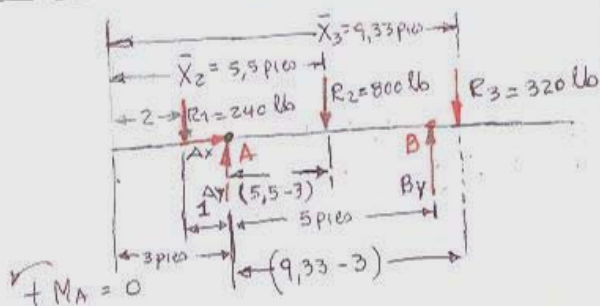 X̄3=9,33 pies
X̄2=5,5 pies
2 R1=240 lb R2=800 lb R3=320 lb
Ax A B
Ay (5,5-3) By
1 5 pies
3 pies (9,33-3)
+ MA = 0